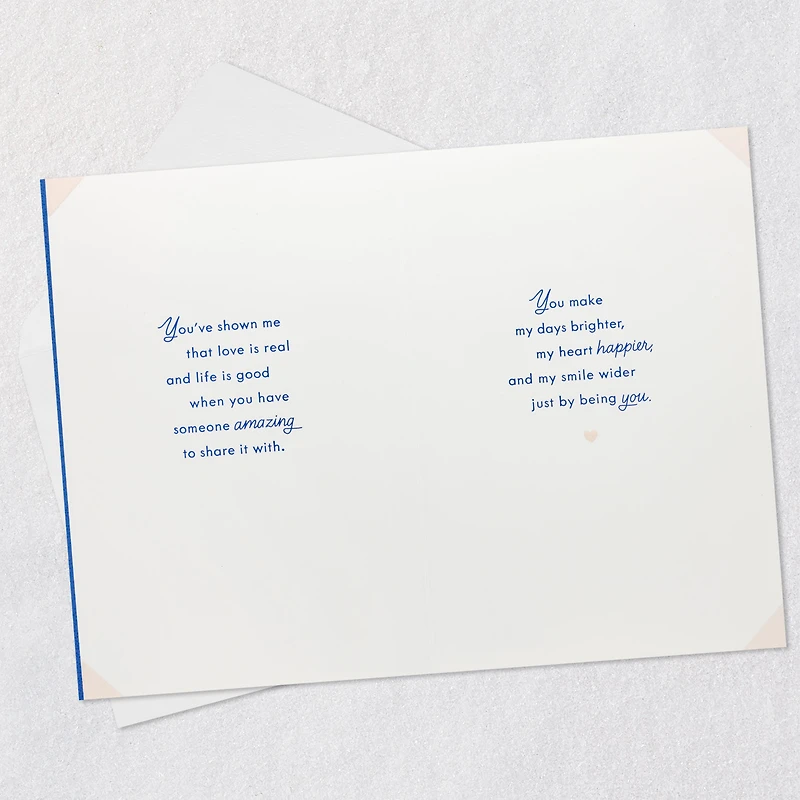 You've shown me
that love is real
and life is good
when you have
someone amazing
to share it with.
You make
my days brighter,
my heart happier,
and my smile wider
just by being you.